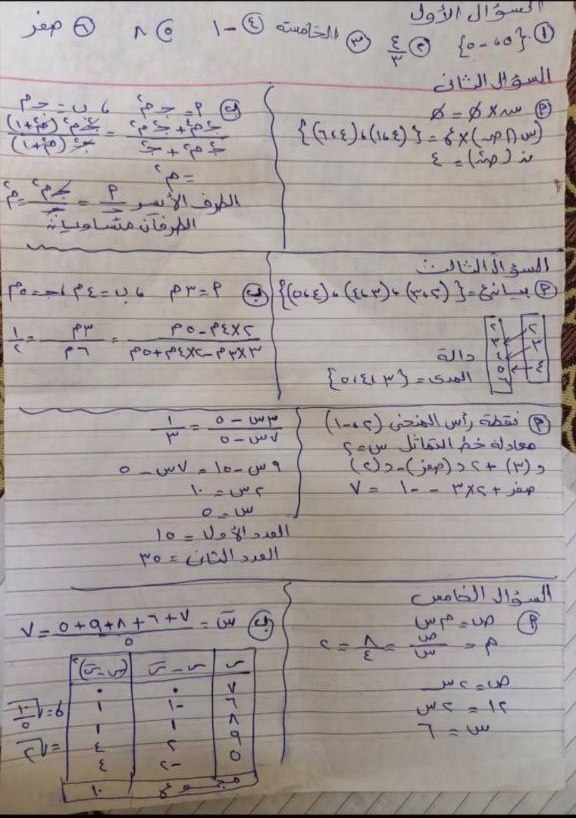 السؤال الأول
① {٥-،٥} ② ٤/٣ ③ الخامسة ④ -١ ⑤ ٨ ⑥ صفر
السؤال الثانى
Ⓟ س × ∅ = ∅
(س ∩ ص) × ع = {(٤،١)، (٤،٦)}
ن (ص²) = ٤
ⓑ ٢م = جم² ، ب = جم
= م²
الطرف الأيسر
الطرفان متساويان
السؤال الثالث
Ⓟ بيان ع = {(٢،٣)، (٣،٤)، (٤،٥)}
دالة
المدى = {٣،٤،٥}
ⓑ P = ٣م ، ب = ٤م ، جـ = ٥م
(٢×٤م - ٥م)/(٣×٣م - ٢×٤م + ٥م) = ٣م/٦م = ١/٢
Ⓟ نقطة رأس المنحنى (٢،-١)
معادلة خط التماثل س = ٢
د(٣) + ٢د(صفر) - د(٢)
صفر + ٢×٣ - -١ = ٧
(٣س - ٥)/(٧س - ٥) = ١/٣
٩س - ١٥ = ٧س - ٥
٢س = ١٠
س = ٥
العدد الأول = ١٥
العدد الثانى = ٣٥
السؤال الخامس
Ⓟ ص = م س
م = ص/س = ٨/٤ = ٢
ص = ٢س
١٢ = ٢س
س = ٦
ⓑ س̄ = (٧+٦+٨+٩+٥)/٥ = ٧
س | س - س̄ | (س - س̄)²
٧ | ٠ | ٠
٦ | -١ | ١
٨ | ١ | ١
٩ | ٢ | ٤
٥ | -٢ | ٤
مجموع | ١٠
σ = √(١٠/٥)
= √٢